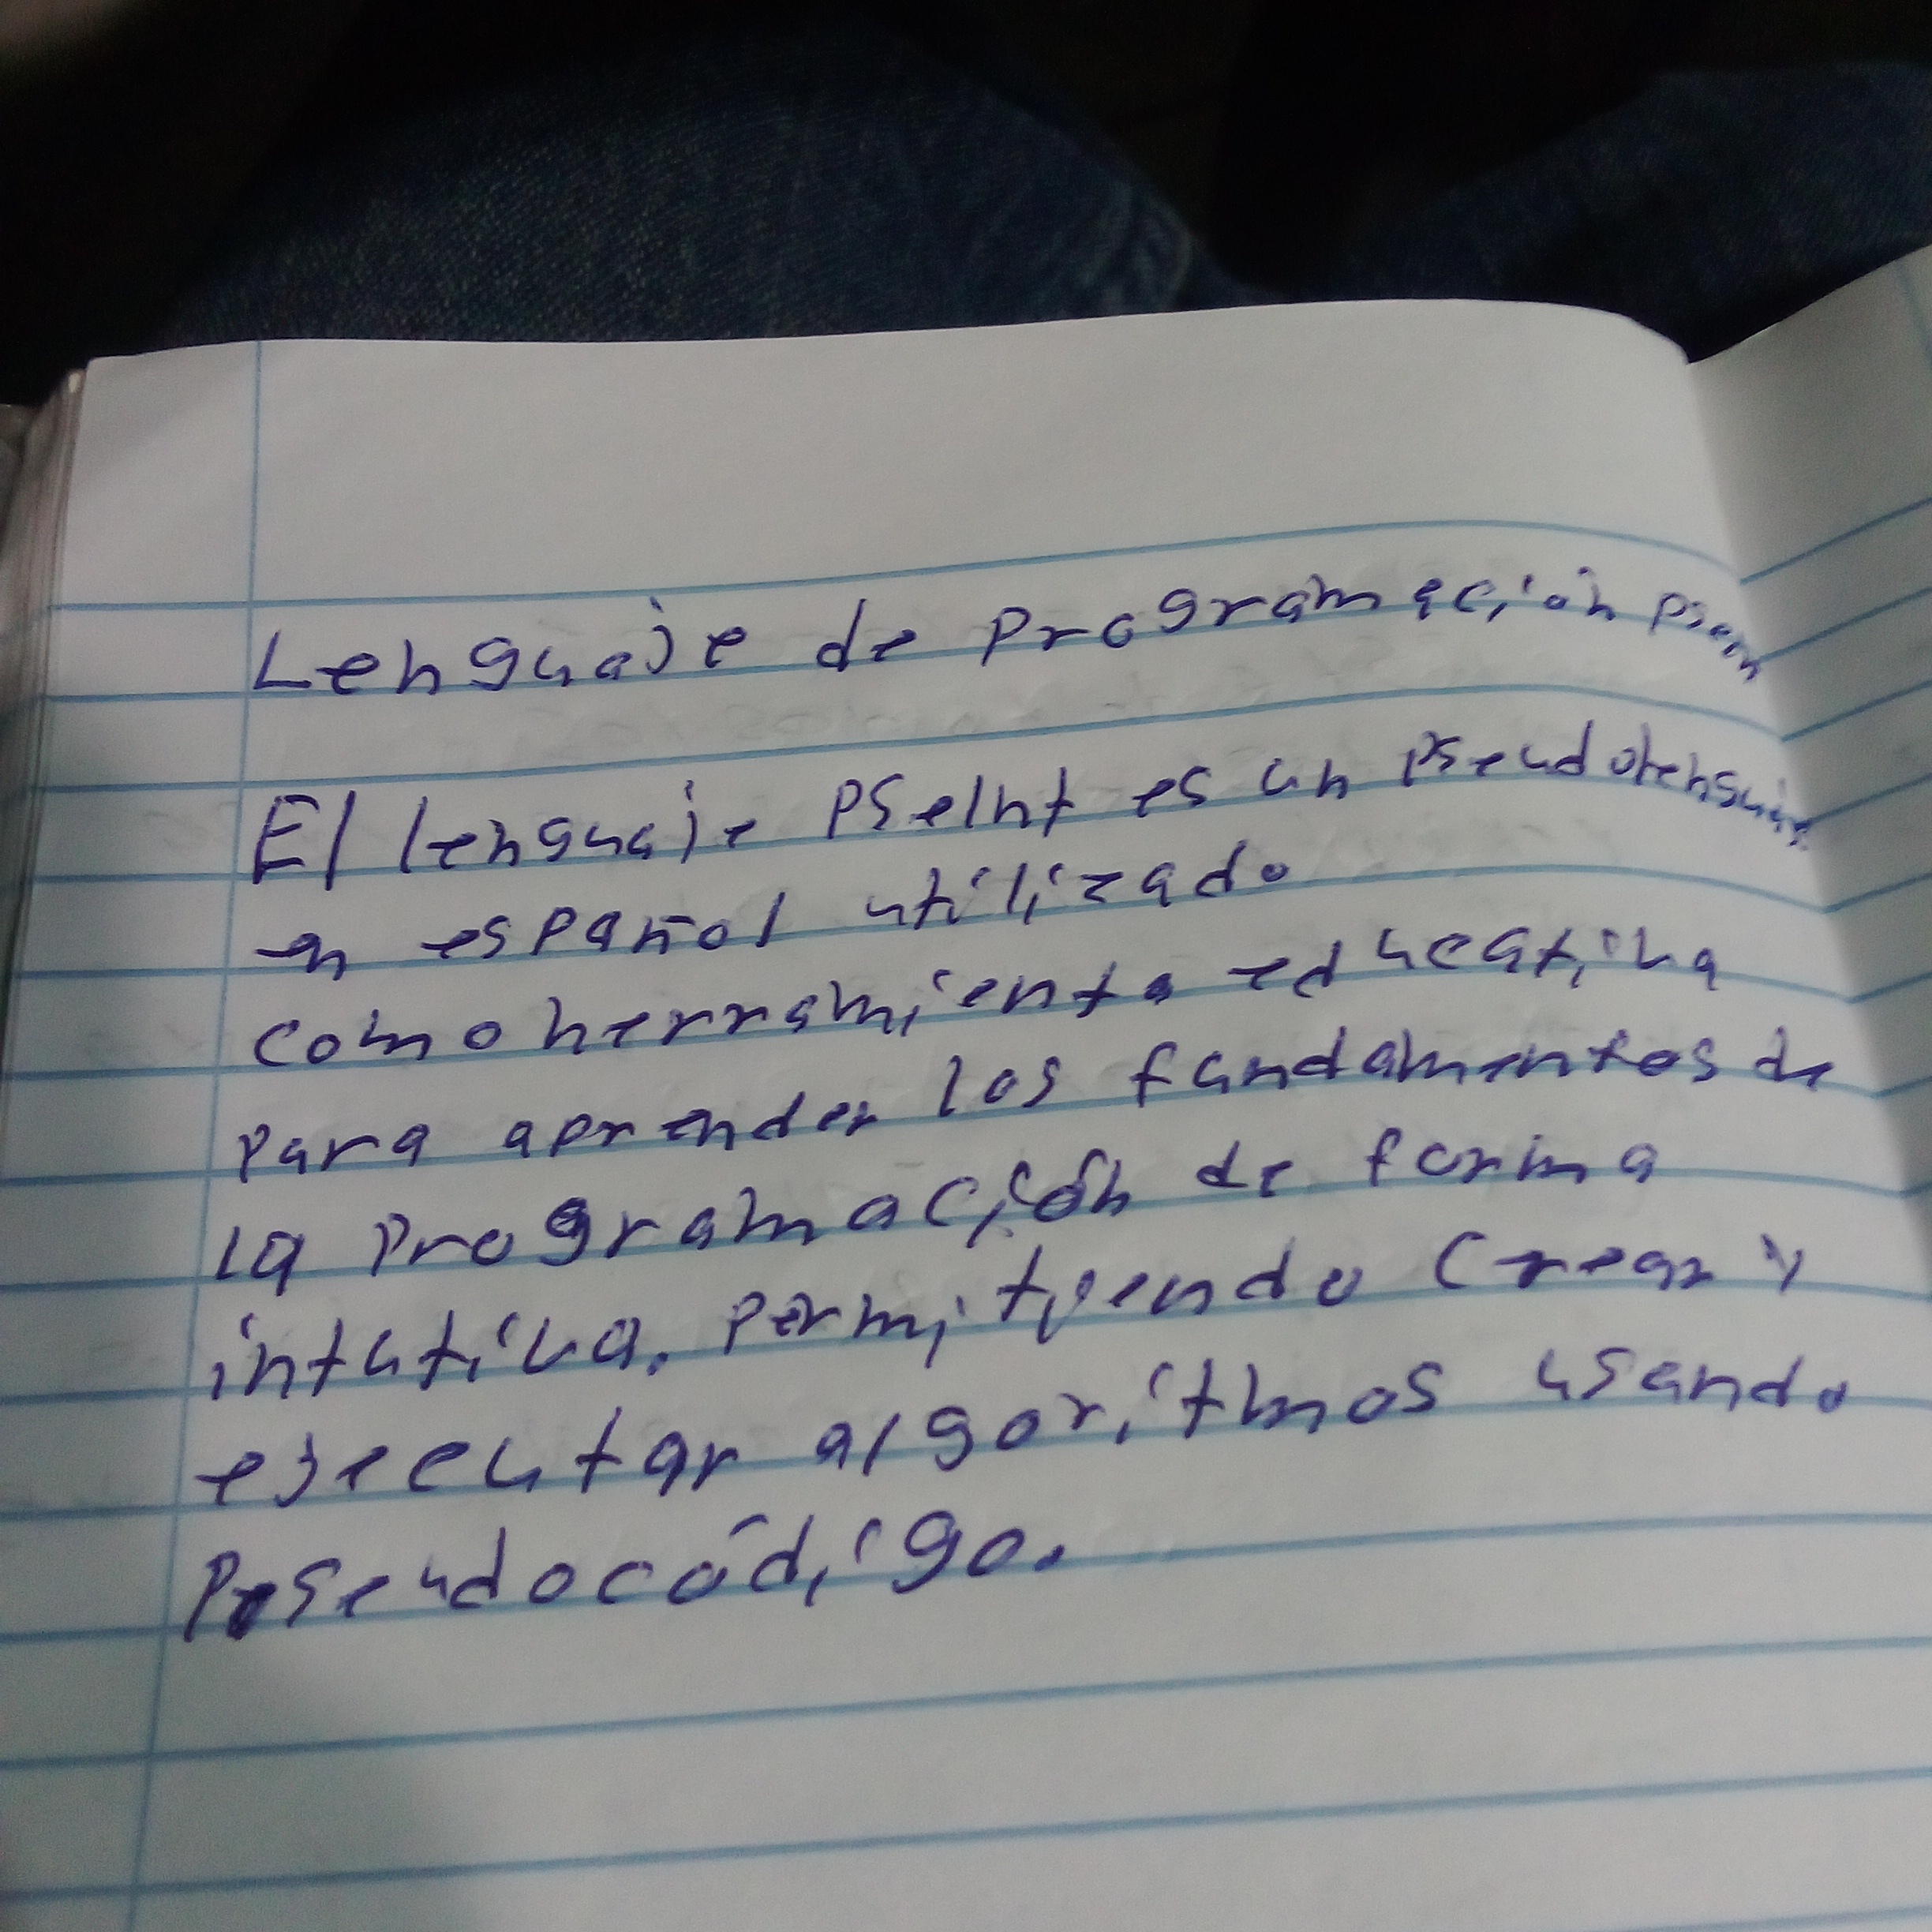 Lenguaje de programación
El lenguaje PSeInt es un pseudolenguaje
en español utilizado
como herramienta educativa
para aprender los fundamentos de
la programación de forma
intutiva. permitiendo crear y
ejecutar algoritmos usando
Pseudocódigo.